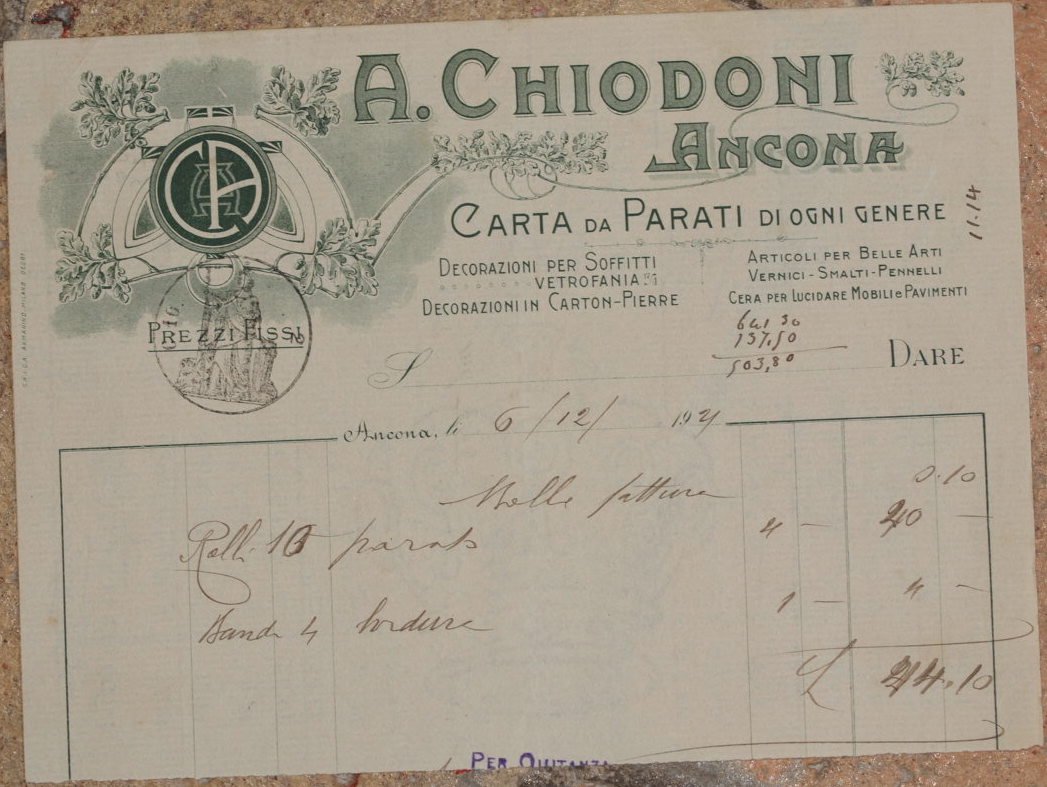 A. CHIODONI
ANCONA
CARTA DA PARATI DI OGNI GENERE
11.14
DECORAZIONI PER SOFFITTI
VETROFANIA
DECORAZIONI IN CARTON-PIERRE
ARTICOLI PER BELLE ARTI
VERNICI - SMALTI - PENNELLI
CERA PER LUCIDARE MOBILI E PAVIMENTI
PREZZI FISSI
137,50
503,80
S
DARE
Ancona, li 6/12/ 192
fattura 0.10
Rolli 10 parati 4 — 40 —
Bande 4 bordura 1 — 4 —
£ 44.10
PER QUITANZA